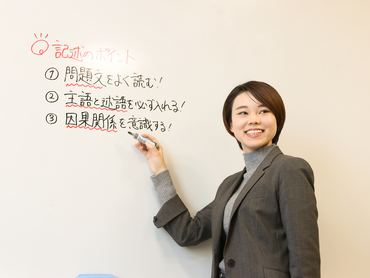 記述のポイント
① 問題文をよく読む!
② 主語と述語を必ず入れる!
③ 因果関係を意識する!